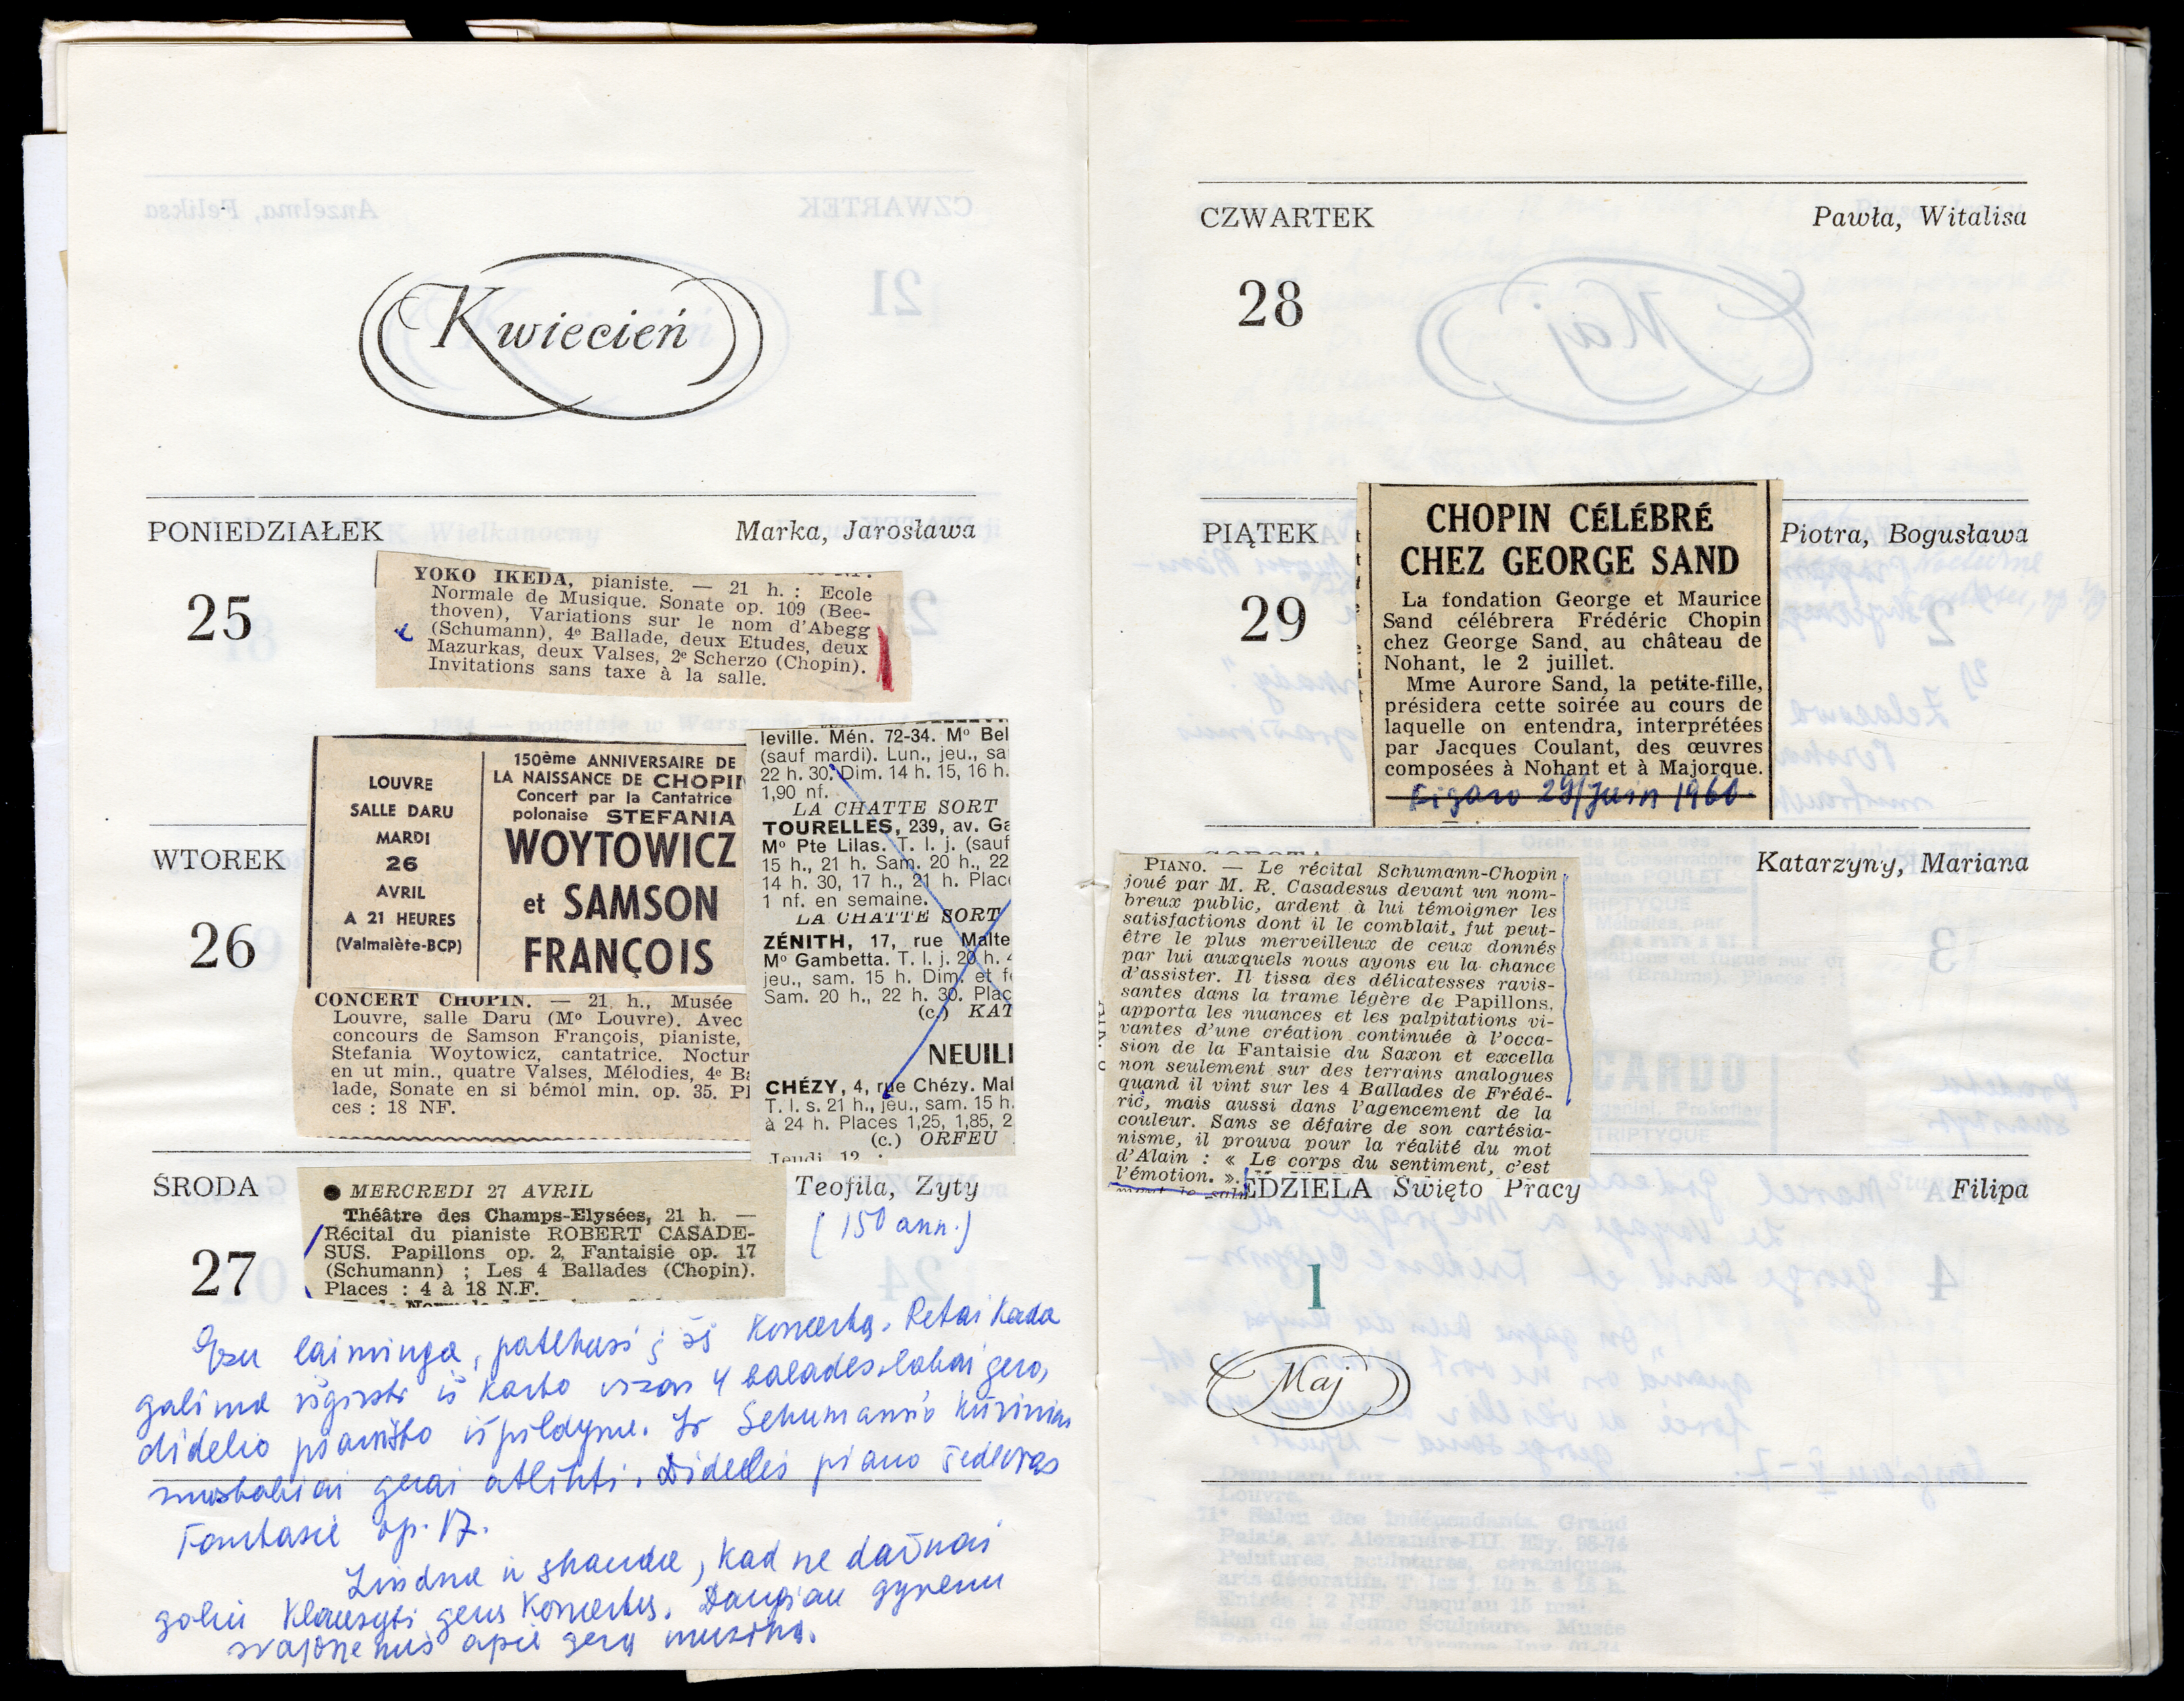 Kwiecień
PONIEDZIAŁEK Marka, Jarosława
25
YOKO IKEDA, pianiste. — 21 h. : Ecole
Normale de Musique. Sonate op. 109 (Bee-
thoven), Variations sur le nom d'Abegg
(Schumann), 4e Ballade, deux Etudes, deux
Mazurkas, deux Valses, 2e Scherzo (Chopin).
Invitations sans taxe à la salle.
WTOREK
26
LOUVRE
SALLE DARU
MARDI
26
AVRIL
A 21 HEURES
(Valmalète-BCP)
150ème ANNIVERSAIRE DE
LA NAISSANCE DE CHOPIN
Concert par la Cantatrice
polonaise STEFANIA
WOYTOWICZ
et SAMSON
FRANÇOIS
CONCERT CHOPIN. — 21 h., Musée
Louvre, salle Daru (Mo Louvre). Avec
concours de Samson François, pianiste,
Stefania Woytowicz, cantatrice. Noctur
en ut min., quatre Valses, Mélodies, 4e Ba
lade, Sonate en si bémol min. op. 35. Pl
ces : 18 NF.
leville. Mén. 72-34. Mo Bel
(sauf mardi). Lun., jeu., sa
22 h. 30. Dim. 14 h. 15, 16 h.
1,90 nf.
LA CHATTE SORT
TOURELLES, 239, av. Ga
Mo Pte Lilas. T. l. j. (sauf
15 h., 21 h. Sam. 20 h., 22
14 h. 30, 17 h., 21 h. Place
1 nf. en semaine.
LA CHATTE SORT
ZÉNITH, 17, rue Malte
Mo Gambetta. T. l. j. 20 h. 4
jeu., sam. 15 h. Dim. et fê
Sam. 20 h., 22 h. 30. Plac
(c.) KAT
NEUILL
CHÉZY, 4, rue Chézy. Mai
T. l. s. 21 h., jeu., sam. 15 h.
à 24 h. Places 1,25, 1,85, 2
(c.) ORFEU
Jeudi 12 :
ŚRODA Teofila, Zyty
27
● MERCREDI 27 AVRIL
Théâtre des Champs-Elysées, 21 h. —
Récital du pianiste ROBERT CASADE-
SUS. Papillons op. 2, Fantaisie op. 17
(Schumann) ; Les 4 Ballades (Chopin).
Places : 4 à 18 N.F.
(150 ann.)
Esu laiminga, patekusi į šį koncertą. Retai kada
galima išgirsti iš karto visas 4 balades labai gero,
didelio pianisto išpildyme. Ir Schumann'o kūriniai
nuostabiai gerai atlikti. Didelis piano šedevras
Fantasie op. 17.
Liūdna ir skaudu, kad ne dažnai
galiu klausyti gerus koncertus. Daugiau gyvenu
svajonėmis apie gerą muziką.
CZWARTEK Pawła, Witalisa
28
PIĄTEK Piotra, Bogusława
29
CHOPIN CÉLÉBRÉ
CHEZ GEORGE SAND
La fondation George et Maurice
Sand célébrera Frédéric Chopin
chez George Sand, au château de
Nohant, le 2 juillet.
Mme Aurore Sand, la petite-fille,
présidera cette soirée au cours de
laquelle on entendra, interprétées
par Jacques Coulant, des œuvres
composées à Nohant et à Majorque.
Figaro 29/juin 1960.
Katarzyny, Mariana
PIANO. — Le récital Schumann-Chopin
joué par M. R. Casadesus devant un nom-
breux public, ardent à lui témoigner les
satisfactions dont il le comblait, fut peut-
être le plus merveilleux de ceux donnés
par lui auxquels nous ayons eu la chance
d'assister. Il tissa des délicatesses ravis-
santes dans la trame légère de Papillons,
apporta les nuances et les palpitations vi-
vantes d'une création continuée à l'occa-
sion de la Fantaisie du Saxon et excella
non seulement sur des terrains analogues
quand il vint sur les 4 Ballades de Frédé-
ric, mais aussi dans l'agencement de la
couleur. Sans se défaire de son cartésia-
nisme, il prouva pour la réalité du mot
d'Alain : « Le corps du sentiment, c'est
l'émotion. ».
EDZIELA Święto Pracy Filipa
1
Maj